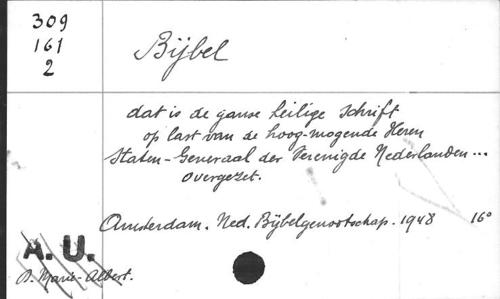 309
161
2
Bijbel
dat is de ganse heilige Schrift
op last van de hoog-mogende Heren
Staten-Generaal der Verenigde Nederlanden...
overgezet.
Amsterdam. Ned. Bijbelgenootschap. 1948 16°
A. U.
B. Marie-Albert.